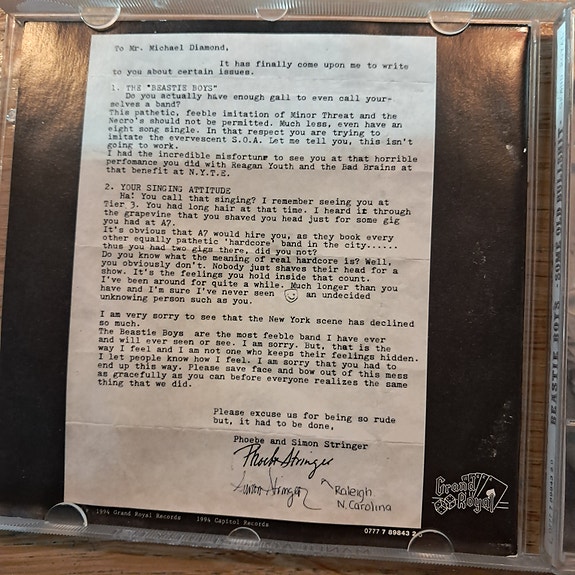 To Mr. Michael Diamond,
It has finally come upon me to write
to you about certain issues.
1. THE "BEASTIE BOYS"
Do you actually have enough gall to even call your-
selves a band?
This pathetic, feeble imitation of Minor Threat and the
Necro's should not be permitted. Much less, even have an
eight song single. In that respect you are trying to
imitate the evervescent S.O.A. Let me tell you, this isn't
going to work.
I had the incredible misfortune to see you at that horrible
perfomance you did with Reagan Youth and the Bad Brains at
that benefit at N.Y.T.E.
2. YOUR SINGING ATTITUDE
Ha! You call that singing? I remember seeing you at
Tier 3. You had long hair at that time. I heard it through
the grapevine that you shaved you head just for some gig
you had at A7.
It's obvious that A7 would hire you, as they book every
other equally pathetic 'hardcore' band in the city......
thus you had two gigs there, did you not?
Do you know what the meaning of real hardcore is? Well,
you obviously don't. Nobody just shaves their head for a
show. It's the feelings you hold inside that count.
I've been around for quite a while. Much longer than you
have and I'm sure I've never seen an undecided
unknowing person such as you.
I am very sorry to see that the New York scene has declined
so much.
The Beastie Boys are the most feeble band I have ever
and will ever seen or see. I am sorry. But, that is the
way I feel and I am not one who keeps their feelings hidden.
I let people know how I feel. I am sorry that you had to
end up this way. Please save face and bow out of this mess
as gracefully as you can before everyone realizes the same
thing that we did.
Please excuse us for being so rude
but, it had to be done,
Phoebe and Simon Stringer
Phoebe Stringer
Simon Stringer
Raleigh
N. Carolina
Grand
Royal
1994 Grand Royal Records 1994 Capitol Records
0777 7 89843 2
BEASTIE BOYS - SOME OLD BULLSH